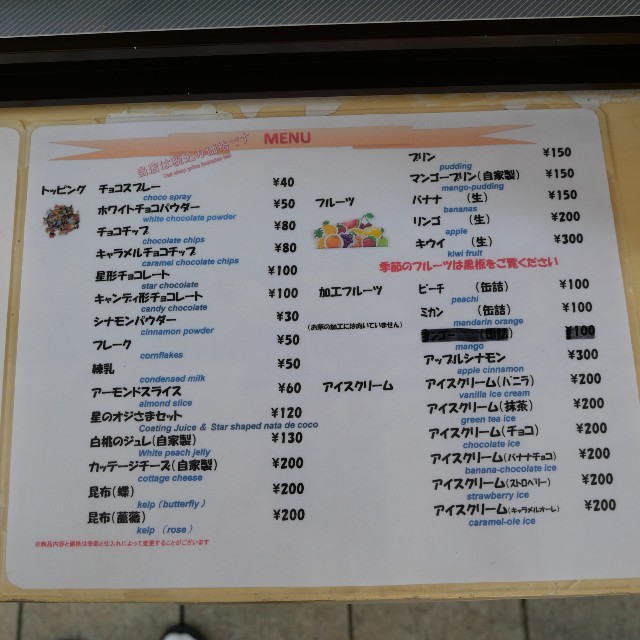 MENU
当店は税込み価格です
トッピング チョコスプレー ¥40
choco spray
ホワイトチョコパウダー ¥50
white chocolate powder
チョコチップ ¥80
chocolate chips
キャラメルチョコチップ ¥80
caramel chocolate chips
星形チョコレート ¥100
star chocolate
キャンディ形チョコレート ¥100
candy chocolate
シナモンパウダー ¥30
cinnamon powder
フレーク ¥50
cornflakes
練乳 ¥50
condensed milk
アーモンドスライス ¥60
almond slice
星のオジさまセット ¥120
Coating Juice & Star shaped nata de coco
白桃のジュレ(自家製) ¥130
White peach jelly
カッテージチーズ(自家製) ¥200
cottage cheese
昆布(蝶) ¥200
kelp (butterfly)
昆布(薔薇) ¥200
kelp (rose)
※商品内容と価格は季節と仕入れによって変更することがございます
プリン ¥150
pudding
マンゴープリン(自家製) ¥150
mango-pudding
フルーツ バナナ (生) ¥150
bananas
リンゴ (生) ¥200
apple
キウイ (生) ¥300
kiwi fruit
季節のフルーツは黒板をご覧ください
加工フルーツ ピーチ (缶詰) ¥100
peachi
ミカン (缶詰) ¥100
mandarin orange
(お茶の加工には向いていません)
マンゴー (缶詰) ¥100
mango
アップルシナモン ¥300
apple cinnamon
アイスクリーム アイスクリーム(バニラ) ¥200
vanilla ice cream
アイスクリーム(抹茶) ¥200
green tea ice
アイスクリーム(チョコ) ¥200
chocolate ice
アイスクリーム(バナナチョコ) ¥200
banana-chocolate ice
アイスクリーム(ストロベリー) ¥200
strawberry ice
アイスクリーム(キャラメルオーレ) ¥200
caramel-ole ice